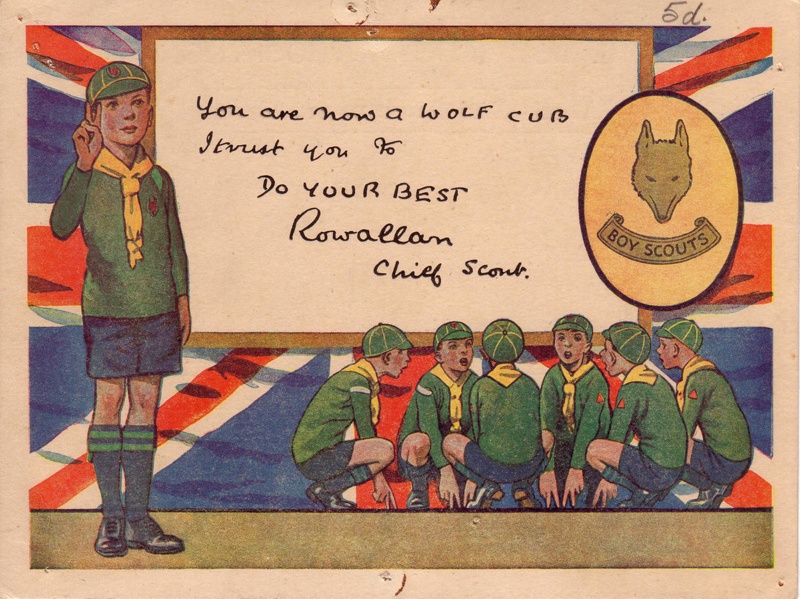 5d.
You are now a WOLF CUB
I trust you to
Do YOUR BEST
Rowallan
Chief Scout.
BOY SCOUTS